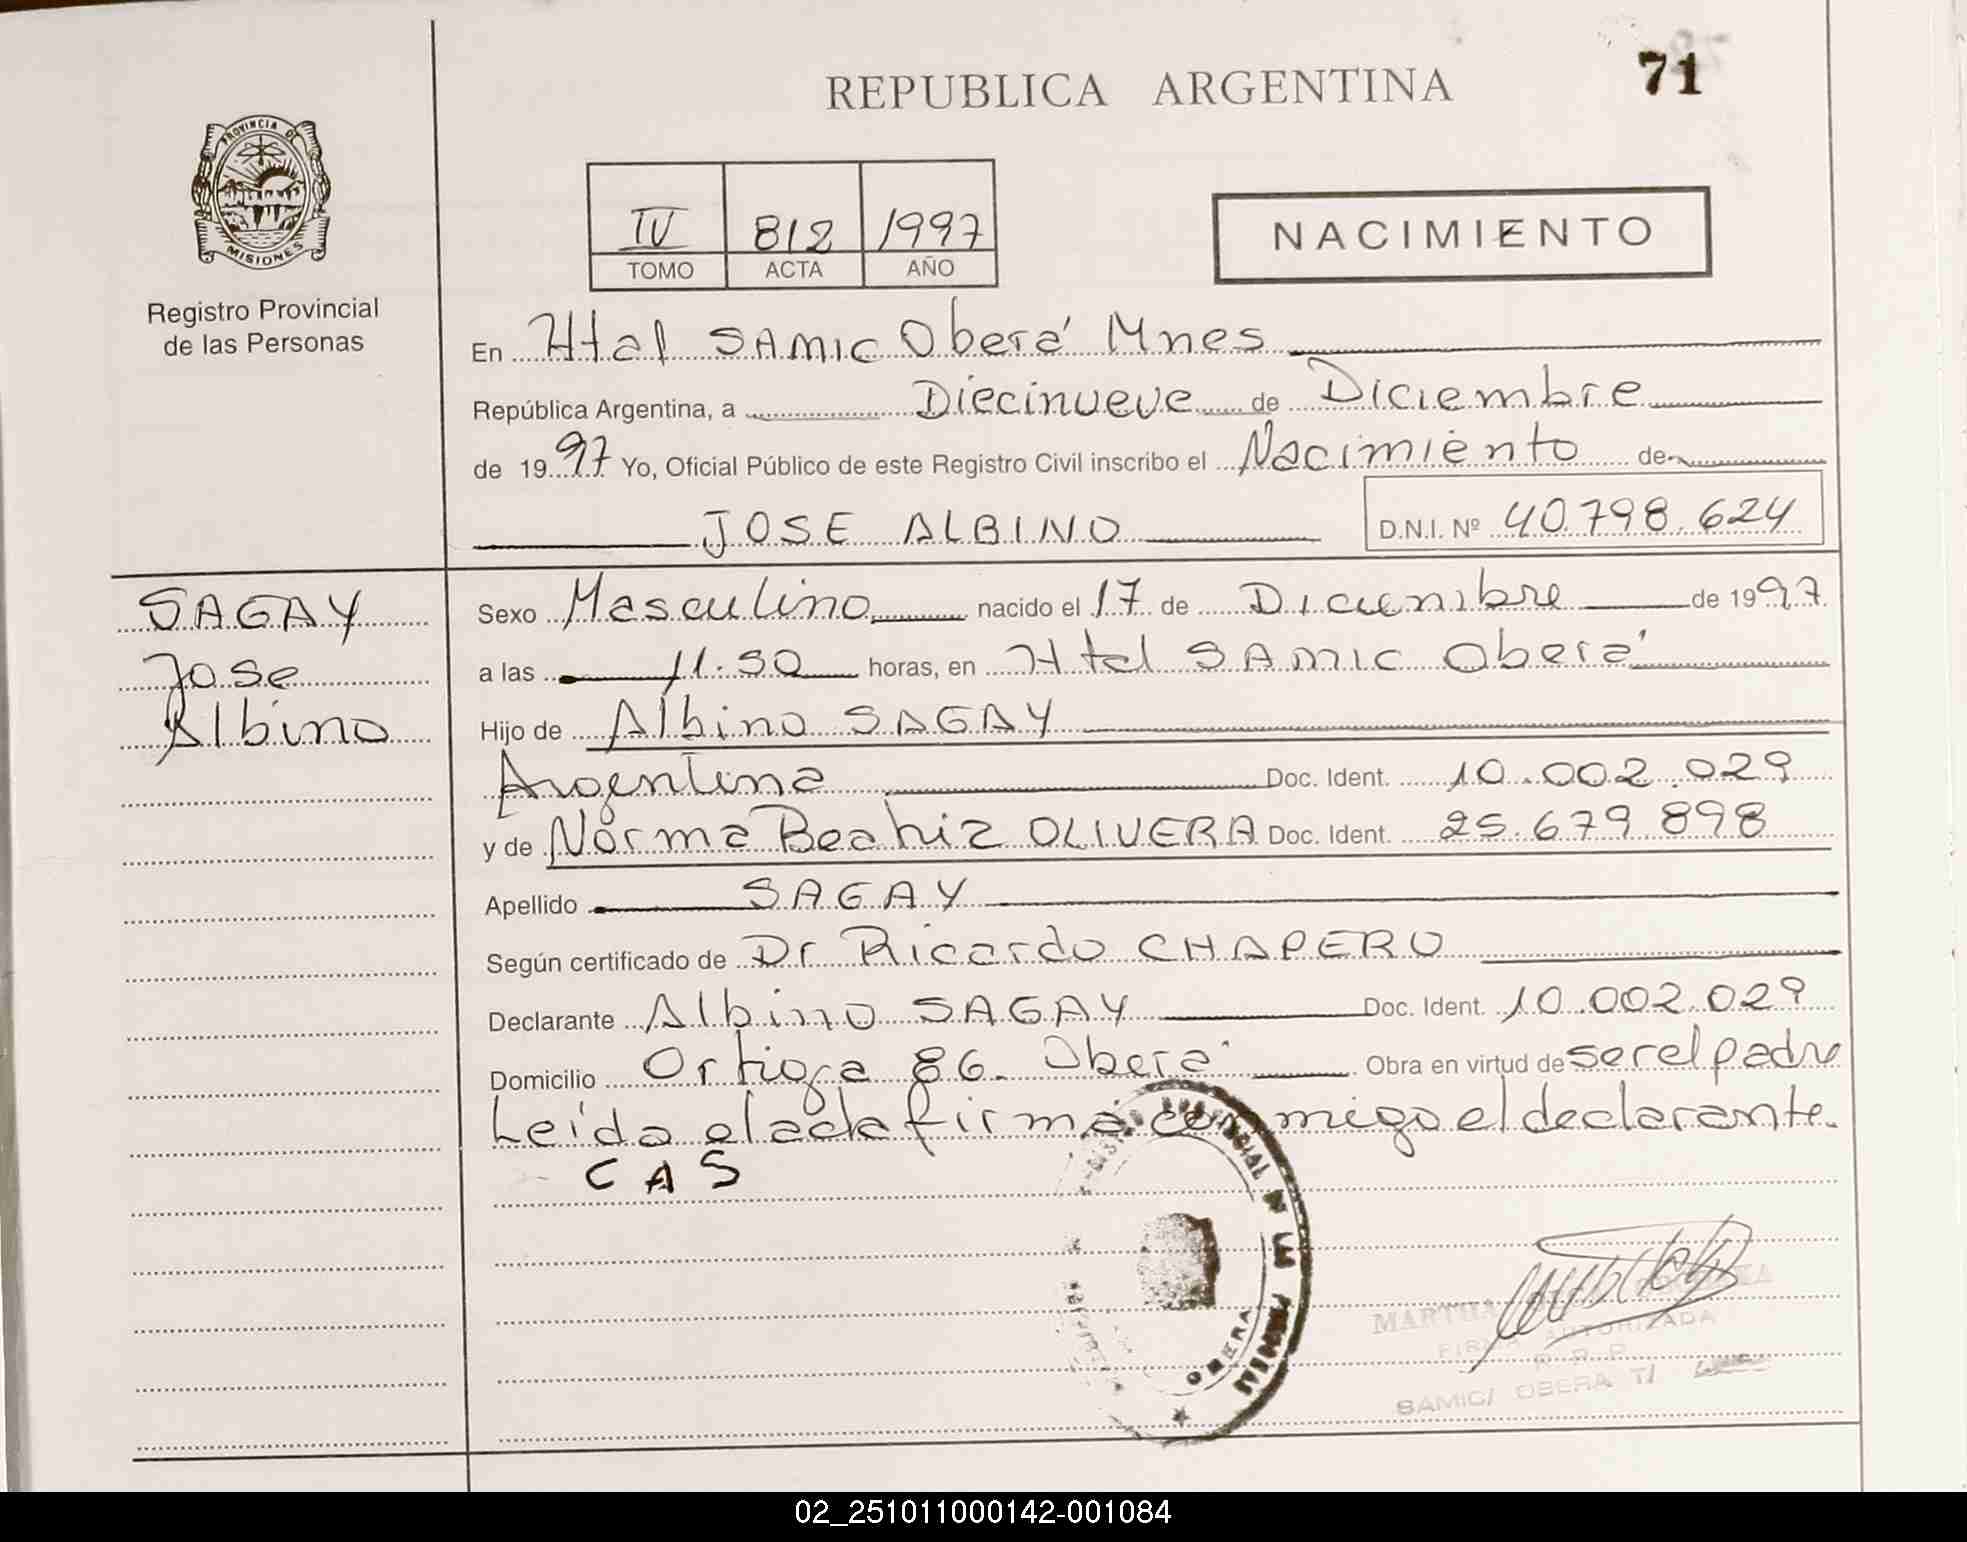 71
REPUBLICA ARGENTINA
PROVINCIA DE
MISIONES
Registro Provincial
de las Personas
IV 812 1997
TOMO ACTA AÑO
NACIMIENTO
En Htal SAMIC Oberá Mnes
República Argentina, a Diecinueve de Diciembre
de 1997 Yo, Oficial Público de este Registro Civil inscribo el Nacimiento de
JOSE ALBINO D.N.I. Nº 40.798.624
SAGAY
Jose
Albino
Sexo Masculino nacido el 17 de Diciembre de 1997
a las 11.30 horas, en Htal SAMIC Oberá
Hijo de Albino SAGAY
Argentina Doc. Ident. 10.002.029
y de Norma Beatriz OLIVERA Doc. Ident. 25.679.898
Apellido SAGAY
Según certificado de Dr Ricardo CHAPERO
Declarante Albino SAGAY Doc. Ident. 10.002.029
Domicilio Ortiga 86. Oberá Obra en virtud de ser el padre
Leída el acta firma conmigo el declarante.
CAS
OBERA
MARTHA
FIRMA AUTORIZADA
R. R. P.
SAMIC/ OBERA
02_251011000142-001084